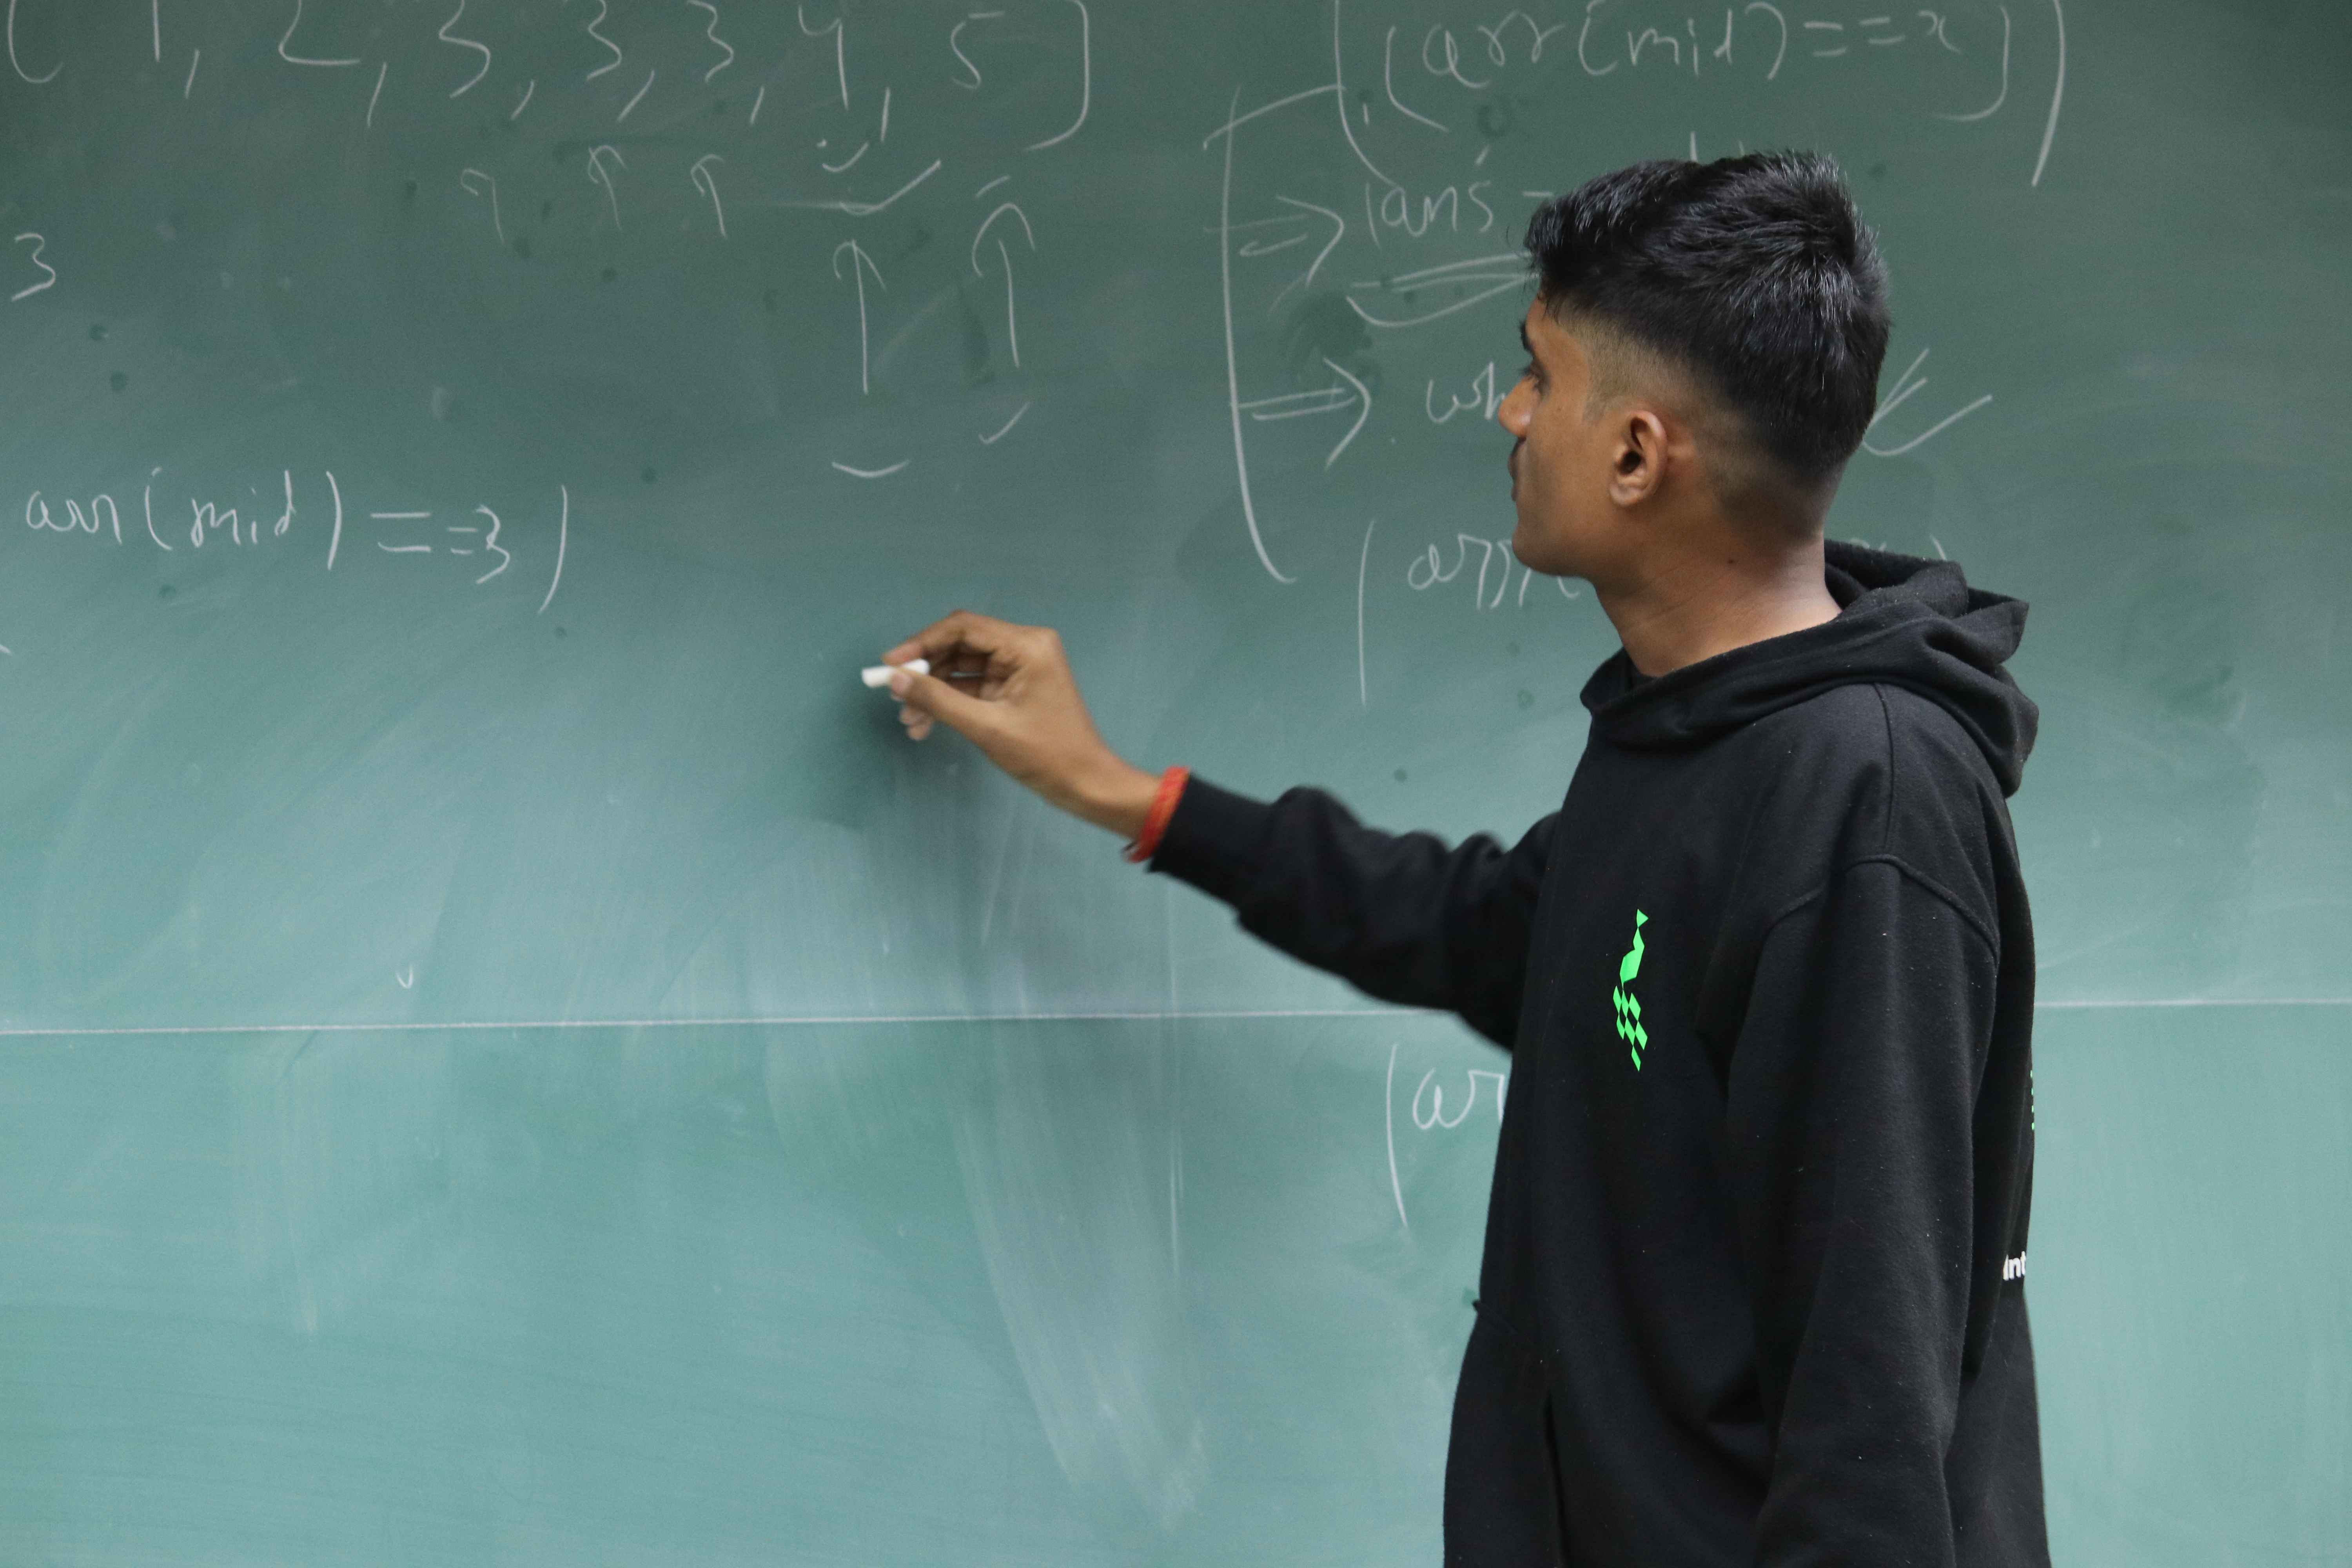 [1, 2, 3, 3, 3, 4, 5]
3
arr(mid) == 3)
(arr(mid) == x)
ans
(arr
(ar